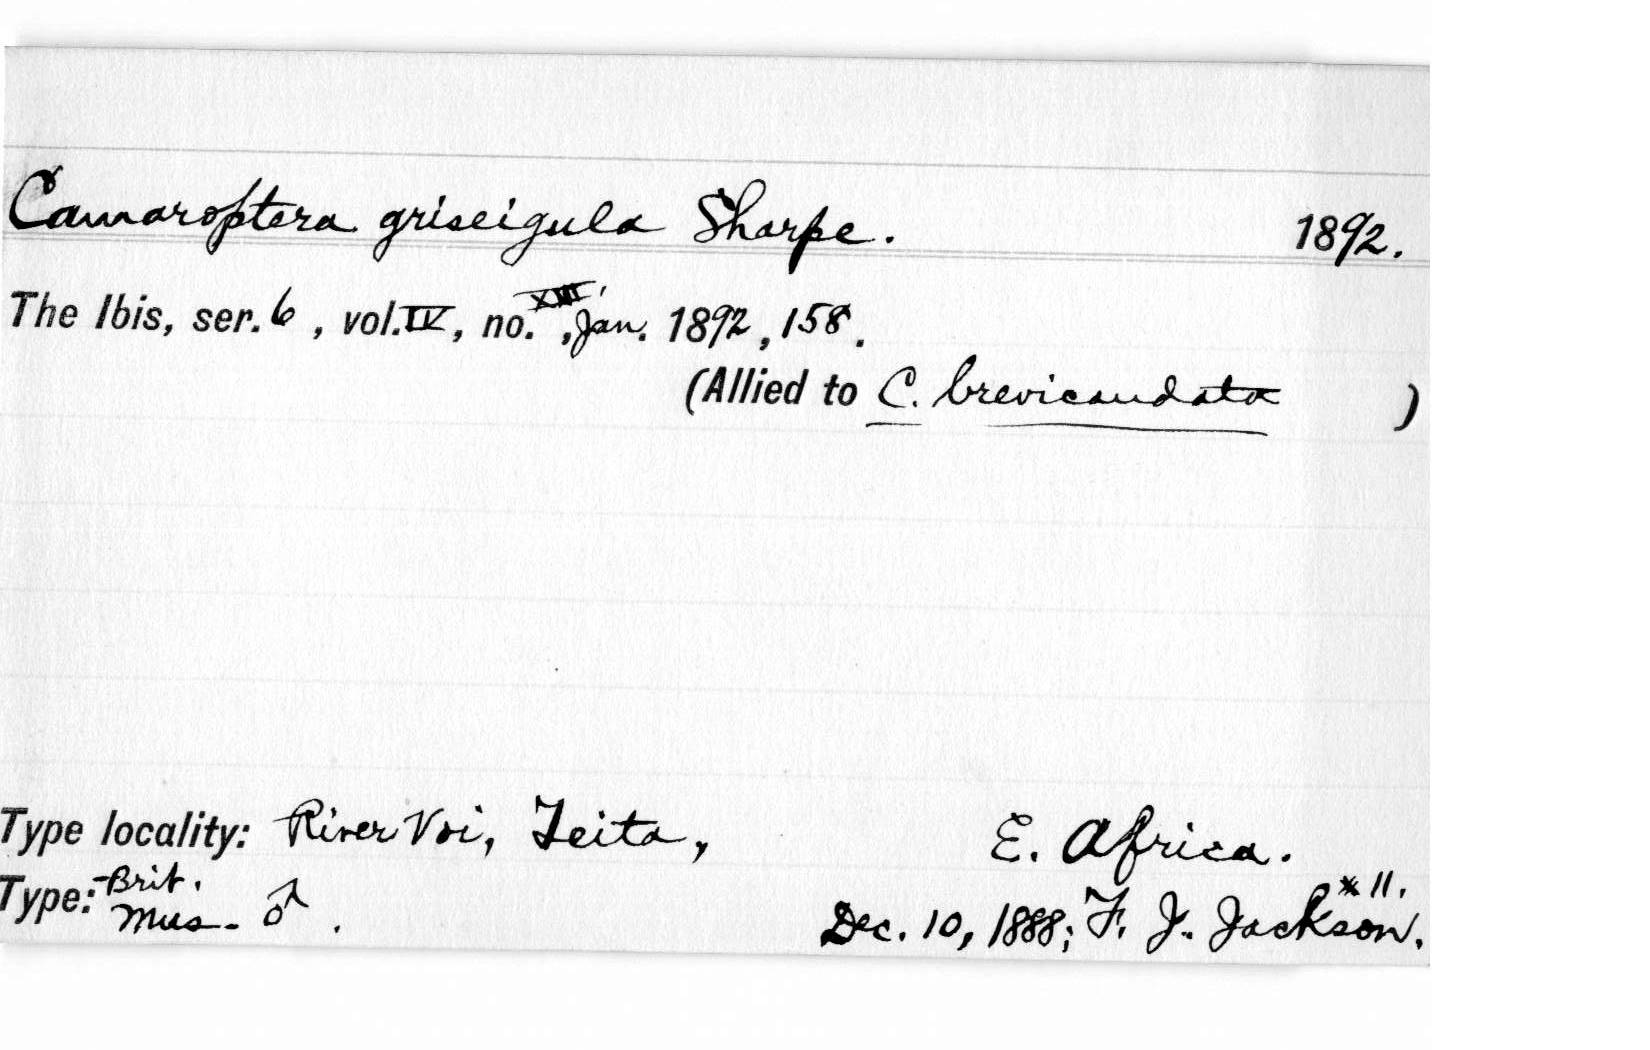 Camaroptera griseigula Sharpe. 1892.
The Ibis, ser. 6, vol. IV, no. XIII, Jan. 1892, 158.
(Allied to C. brevicaudata )
Type locality: River Voi, Teita, E. Africa.
Type: Brit. Mus. ♂. Dec. 10, 1888; F. J. Jackson. * 11.